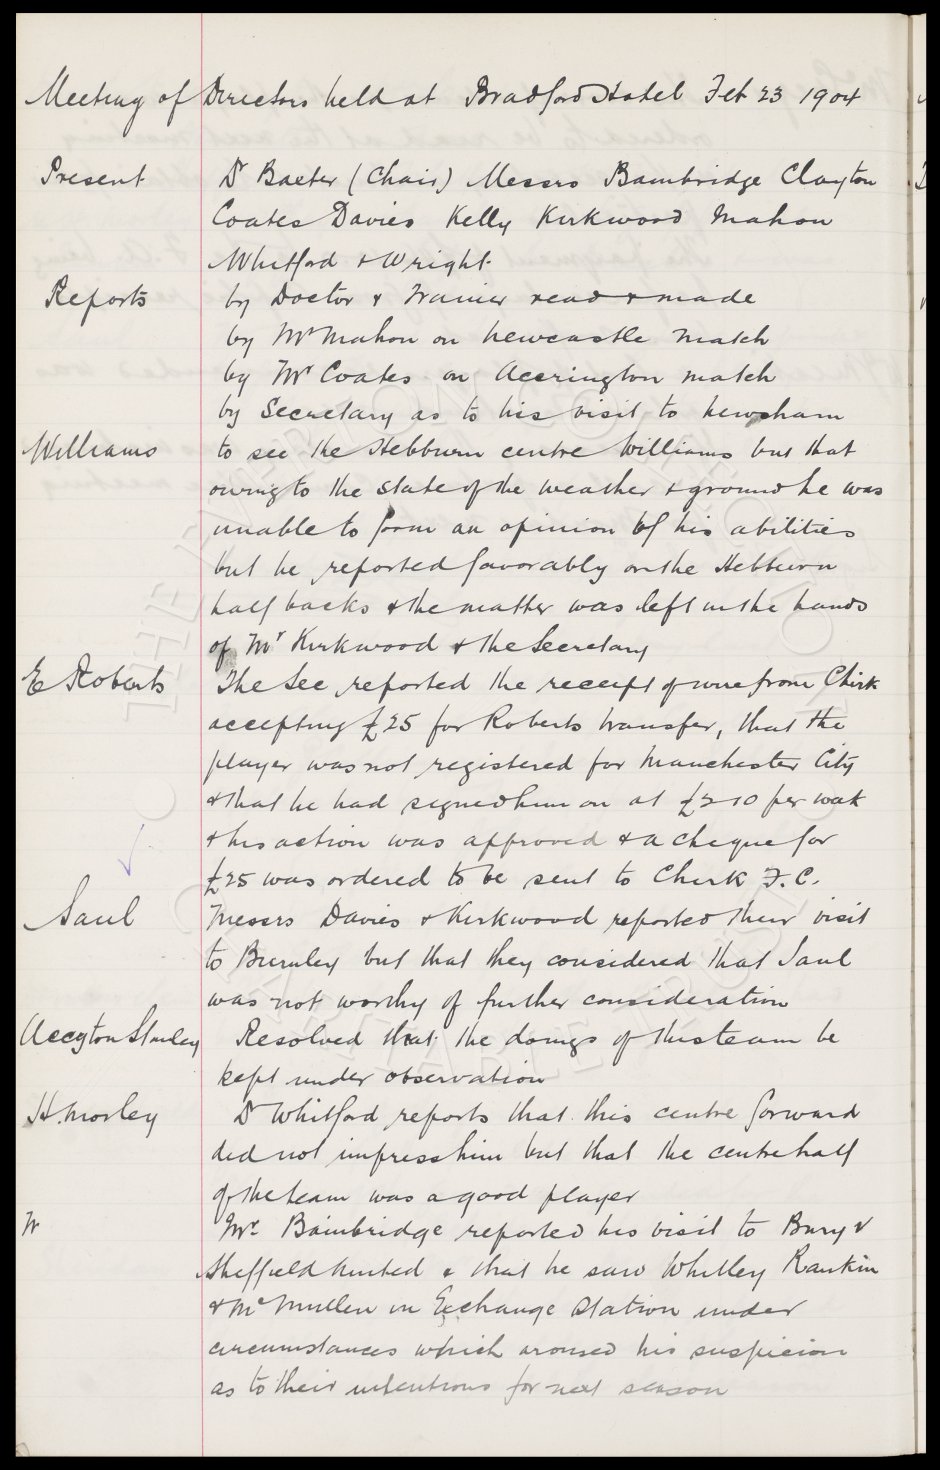 Meeting of Directors held at Bradford Hotel Feb 23 1904
Present Dr Baxter (Chair) Messrs Bainbridge Clayton
Coates Davies Kelly Kirkwood Mahon
Whitford & Wright.
Reports by Doctor & Trainer read & made
by Mr Mahon on Newcastle match
by Mr Coates on Accrington match
by Secretary as to his visit to hewsham
Williams to see the Hebburn centre Williams but that
owing to the state of the weather & ground he was
unable to form an opinion of his abilities
but he reported favorably on the Hebburn
half backs & the matter was left in the hands
of Mr Kirkwood & the Secretary
E Roberts The Sec reported the receipt of wire from Chirk
accepting £25 for Roberts transfer, that the
player was not registered for Manchester City
& that he had signed him on at £2 10 per week
& his action was approved & a cheque for
£25 was ordered to be sent to Chirk F.C.
Saul Messrs Davies & Kirkwood reported their visit
to Burnley but that they considered that Saul
was not worthy of further consideration
Accgton Stanley Resolved that the doings of this team be
kept under observation
H. Morley Dr Whitford reports that this centre forward
did not impress him but that the centre half
of the team was a good player
W Mr Bainbridge reported his visit to Bury v
Sheffield United & that he saw Whitley Rankin
& McMullen in Exchange Station under
circumstances which aroused his suspicion
as to their intentions for next season